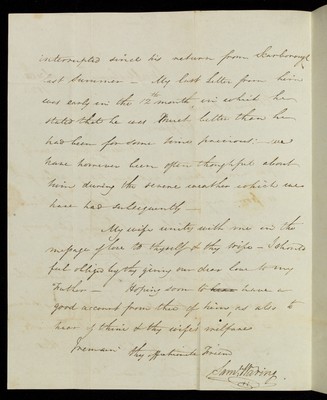 interrupted since his return from Scarborough
last Summer — My last letter from him
was early in the 12th month, in which he
stated that he was much better than he
had been for some time previous: we
have however been often thoughtful about
him during the severe weather which we
have had subsequently —
My wife unites with me in the
message of love to thyself & thy wife — I should
feel obliged by thy giving our dear love to my
Father — Hoping soon to have a
good account from thee of him, as also to
hear of thine & thy wife's welfare
I remain thy affectionate Friend
Saml Waring